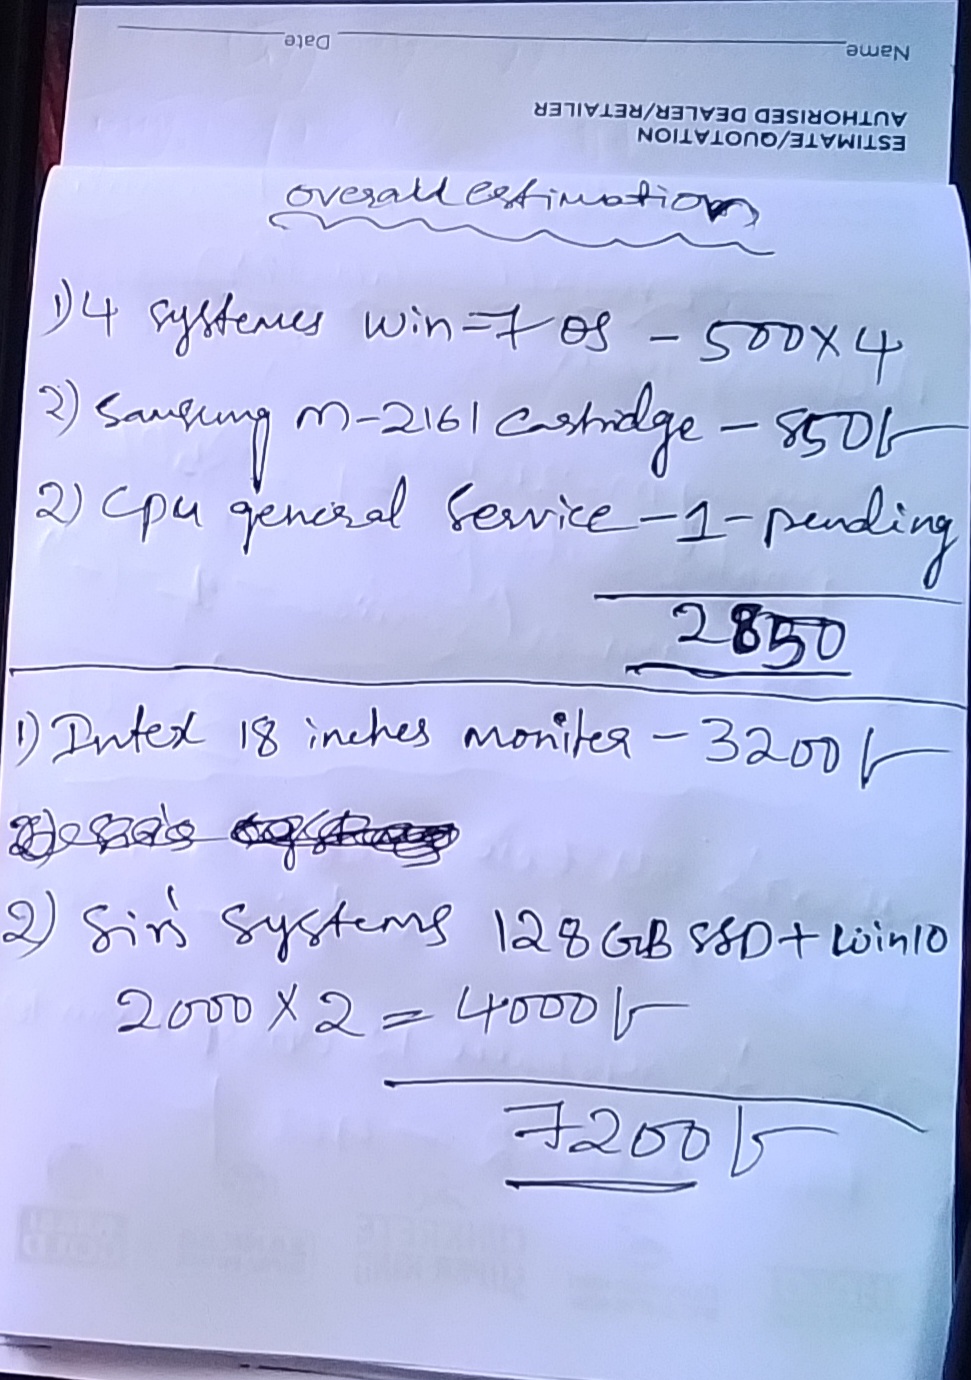 Name Date
ESTIMATE/QUOTATION
AUTHORISED DEALER/RETAILER
overall estimation
1) 4 systems win-7 os - 500X4
2) Samsung m-2161 Cartridge - 850/-
2) Cpu general Service - 1 - pending
2850
1) Intex 18 inches moniter - 3200/-
2) Sir's systems 128GB SSD + win10
2000 X 2 = 4000/-
7200/-